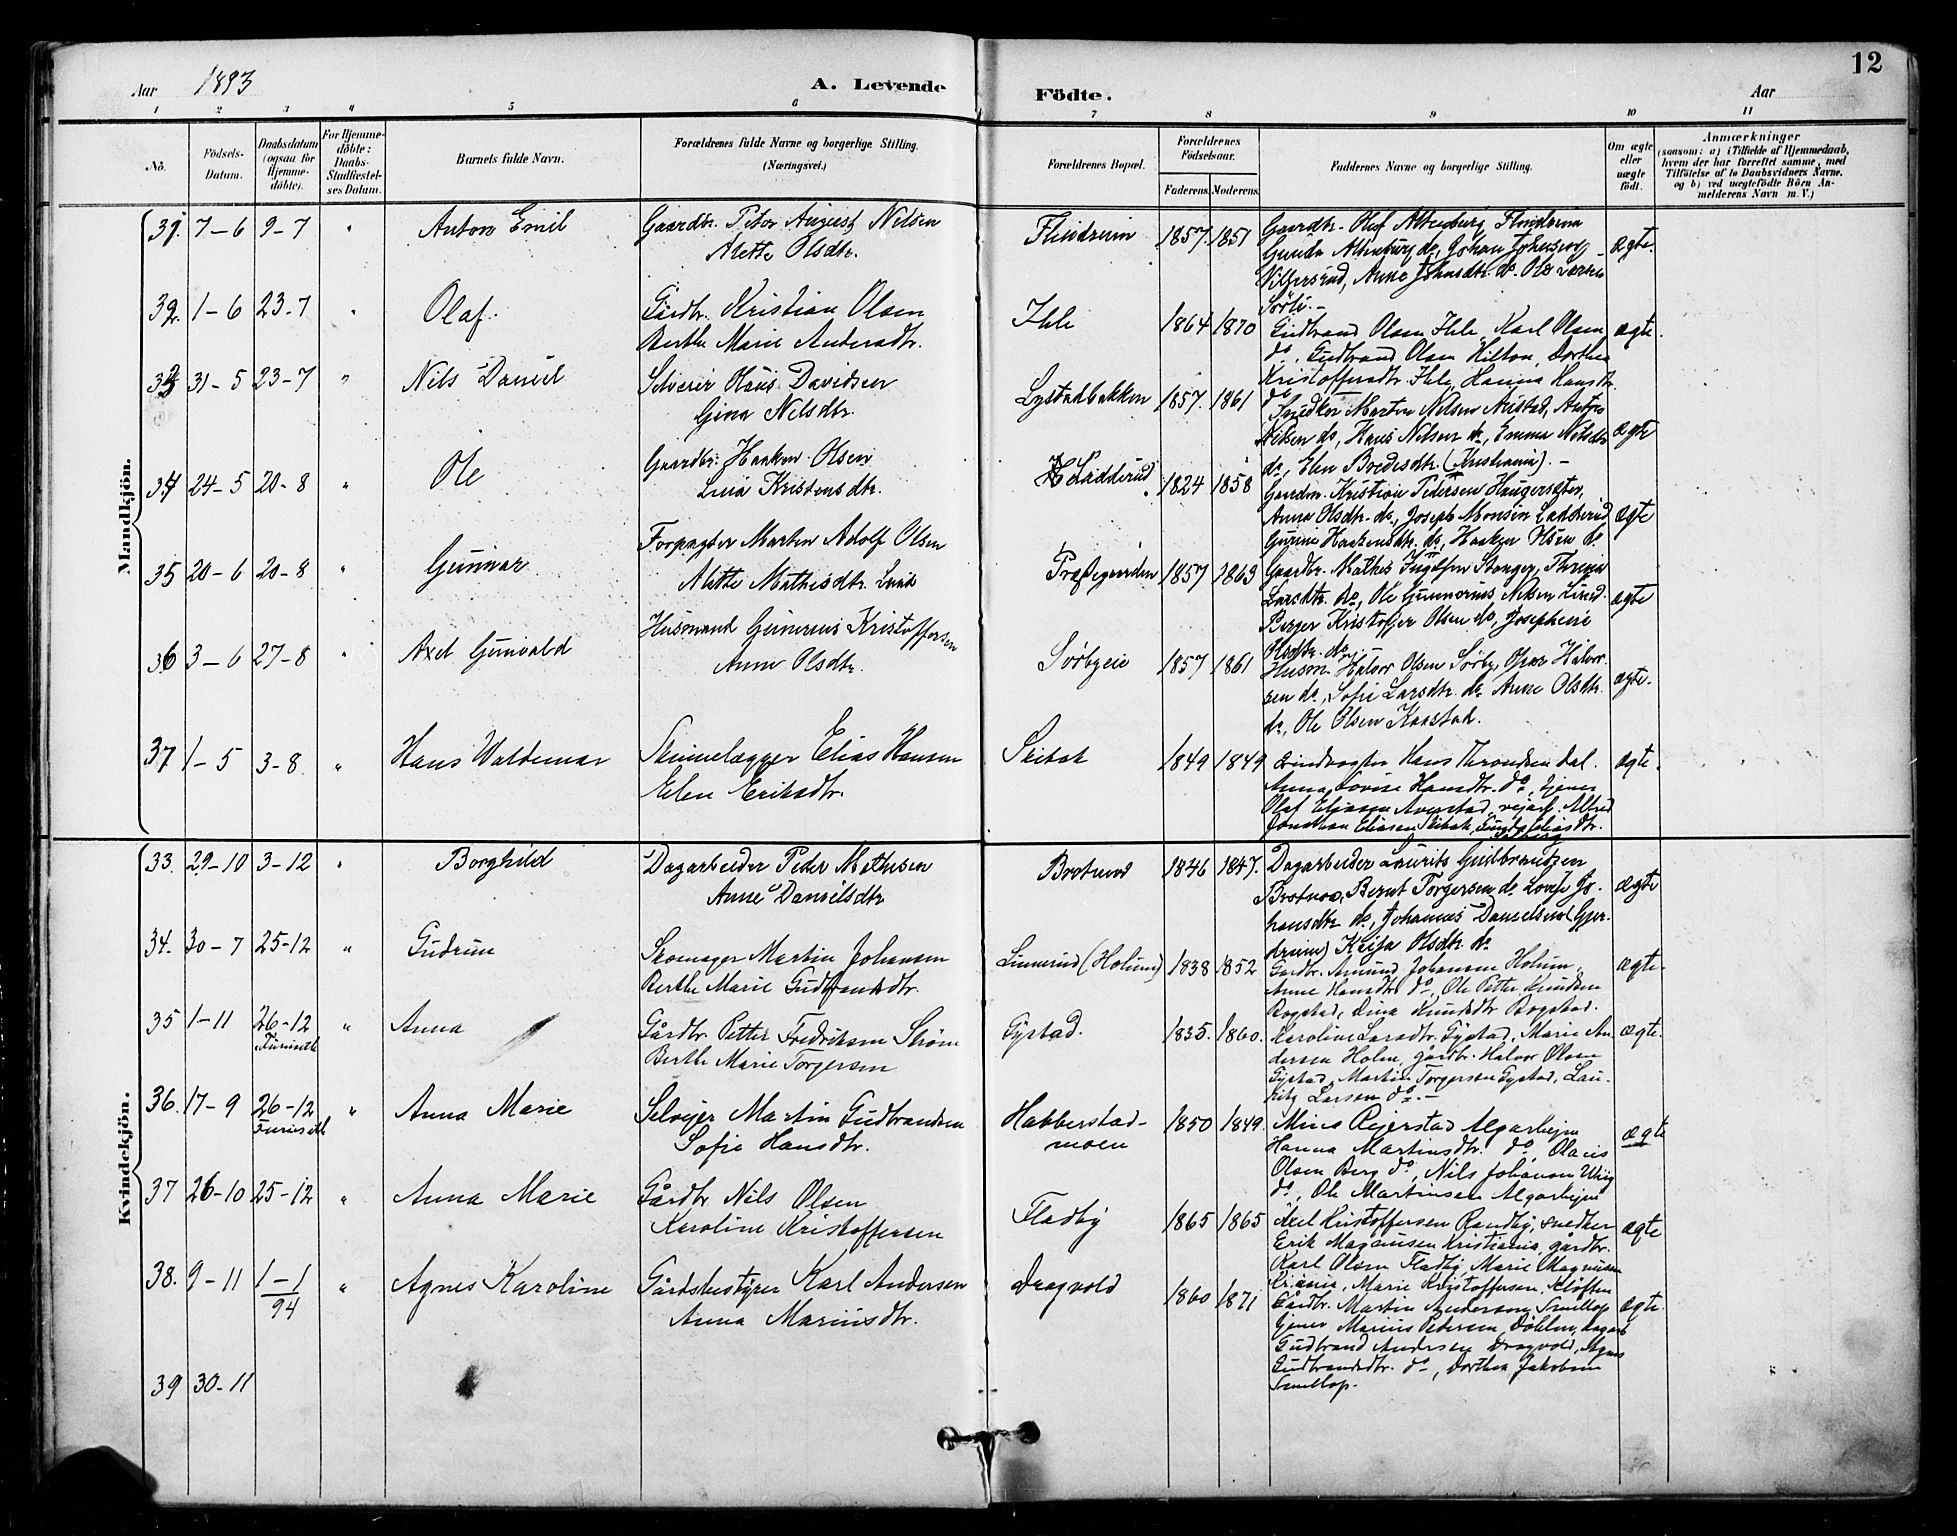 12
Aar 1893
A. Levende
Födte.
Aar
1 2 3 4 5 6 7 8 9 10 11
No.
Födsels-Datum.
Daabsdatum (ogsaa for Hjemmedöbte).
For Hjemmedöbte: Daabs-Stadfæstelses Datum.
Barnets fulde Navn.
Forældrenes fulde Navne og borgerlige Stilling. (Næringsvei.)
Forældrenes Bopæl.
Forældrenes Födselsaar.
Faderens. Moderens.
Faddernes Navne og borgerlige Stilling.
Om ægte eller uægte födt.
Anmærkninger
(saasom: a) i Tilfælde af Hjemmedaab, hvem der har forrettet samme, med Tilföielse af to Daabsvidners Navne, og b) ved uægtefödte Börn Anmelderens Navn m. V.)
Mandkjön.
31. 7-6 9-7 " Anton Emil Gaardbr. Peter August Nilsen
Mette Olsdtr. 1857. 1851 ægte.
32. 1-6 23-7 " Olaf. Gårdbr. Kristian Olsen
Berthe Marie Andersdtr. Ihle 1864 1870
Gudbrand Olsen Ihle, Karl Olsen
do, Gudbrand Olsen Hilton, Dorthea
Kristoffersdtr. Ihle, Hanna Hansdtr.
do ægte.
33 31-5 23-7 " Nils Daniel Davidsen
Gina Nilsdtr. Lystadbakken 1857. 1861
Snedker Morten Nilsen
Nilsen do, Hans Nilsen do, Emma Nilsdtr
do, Elen Bredesdtr. (Kristiania). - ægte
34 24-5 20-8 " Ole Gaardbr. Haaken Olsen
Kristensdtr. Ladderud 1824 1858
Gaardbr. Kristian Pedersen
Anna Olsdtr. do, Joseph Monsen Ladderud
Haakensdtr. do, Haaken Olsen do ægte
35 20-6 20-8 " Gunnar Forpagter Morten Adolf Olsen
Mette Mathisdtr. Lund Præstegaarden 1857 1863
Gaardbr. Mathis
Larsdtr. do, Ole Gunnerius Nilsen Lund
Berger Kristoffer Olsen do, Josephine
Olsdtr. do ægte
36 3-6 27-8 " Axel Gunvald Husmand Gunerius Kristoffersen
Anne Olsdtr. Sørbyeie 1857 1861
Husm. Halvor Olsen Sørby, Halvor-
sen do, Sofie Larsdtr. do Anne Olsdtr.
do, Ole Olsen Kaastad. ægte.
37 1-5 3-8 " Hans Waldemar Skinnelægger Elias Hansen
Elen Eriksdtr. Skibak 1849 1849
Hans Throndsen Dal.
Anna Lovise Hansdtr. do, tjener
Olaf Eliasen Alfred
Jonathan Eliasen Skibak, Eliasdtr. ægte.
Kvindekjön.
33. 29-10 3-12 " Borghild Dagarbeider Peder Mathisen
Anne Danielsdtr 1846 1847.
Dagarbeider Laurits Gudbrandsen
Bernt Torgersen do Lovise Jo-
hansdtr do, Johannes Danielsen (Gjer-
drum) Kaisa Olsdtr. do ægte
34. 30-7 25-12 " Gudrun Skomager Martin Johansen
Berthe Marie Gudbrandsdtr. Linnerud (Holum) 1838 1852
Gårdbr. Amund Johansen Holum,
Anne Hansdtr do, Ole Petter
Bogstad, Bogstad. ægte.
35 1-11 26-12 " Anna Gårdbr. Petter Fredriksen Strøm
Furuseth Berthe Marie Torgersen Gystad. 1835. 1860.
Karoline Larsdtr. Gystad, Marie An-
dersen Holm, gårdbr. Halvor Olsen
Gystad, Martin Torgersen Gystad, Lau-
ritz Larsen do. - ægte.
36. 17-9 26-12 " Anna Marie Selveier Martin Gudbrandsen
Furuseth Sofie Hansdtr. Habberstad-
moen 1850 1849.
Mina Rejerstad Algarhejm
Hanna Martinsdtr. do, Olaus
Olsen Berg do, Nils Johansen
do, Ole Martinsen Algarhejm ægte
37 26-10 25-12 " Anna Marie Gårdbr Nils Olsen
Karoline Kristoffersen Fladby 1865 1865
Axel Kristoffersen Randby, snedker
Erik Magnusen Kristiania, gårdbr.
Karl Olsen Fladby, Marie Magnusen
Kr.ania, Marie Kristoffersen, Kløften ægte
38. 9-11 1-1/94 " Agnes Karoline Gårdsbestyrer Karl Andersen
Anna Mariusdtr. Dragvold 1860 1871
Gårdbr. Martin Andersen Smellop
tjener Marius Petersen Døhlen, dagarb
Gudbrand Andersen Dragvold, Agnes
Gudbrandsdtr. do, Dorthea Jakobsen
Smellop. ægte.
39 30-11